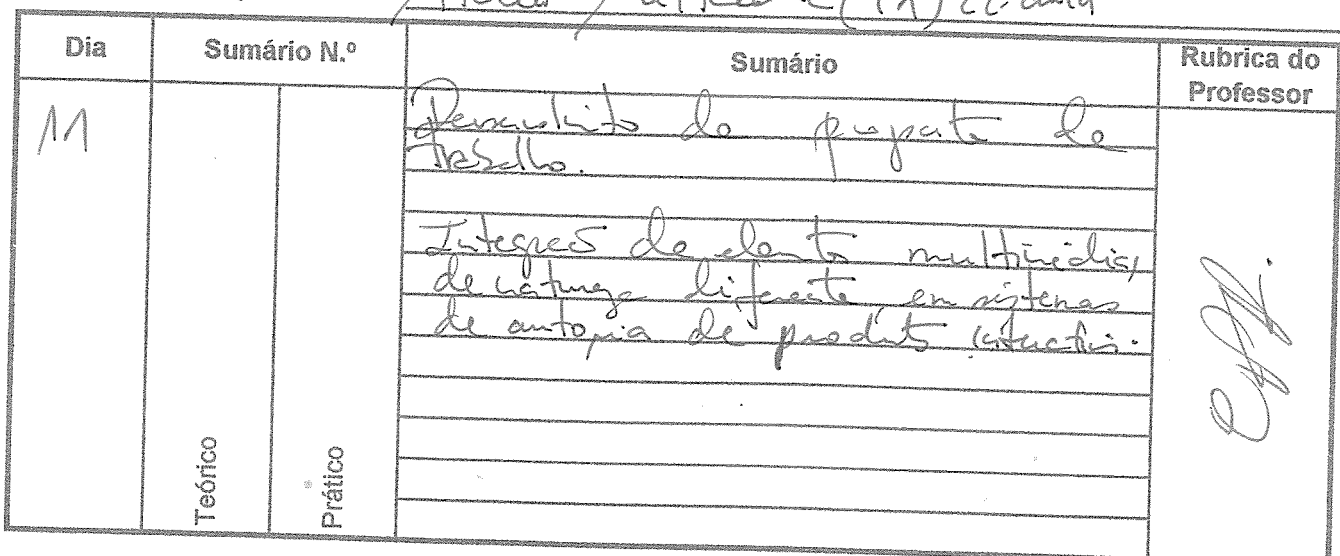 Dia Sumário N.º Sumário Rubrica do Professor
11
Desenvolvimento da proposta de
trabalho.
Integração de elementos multimédia,
de natureza diferente, em sistemas
de autoria de produtos interactivos.
Teórico
Prático